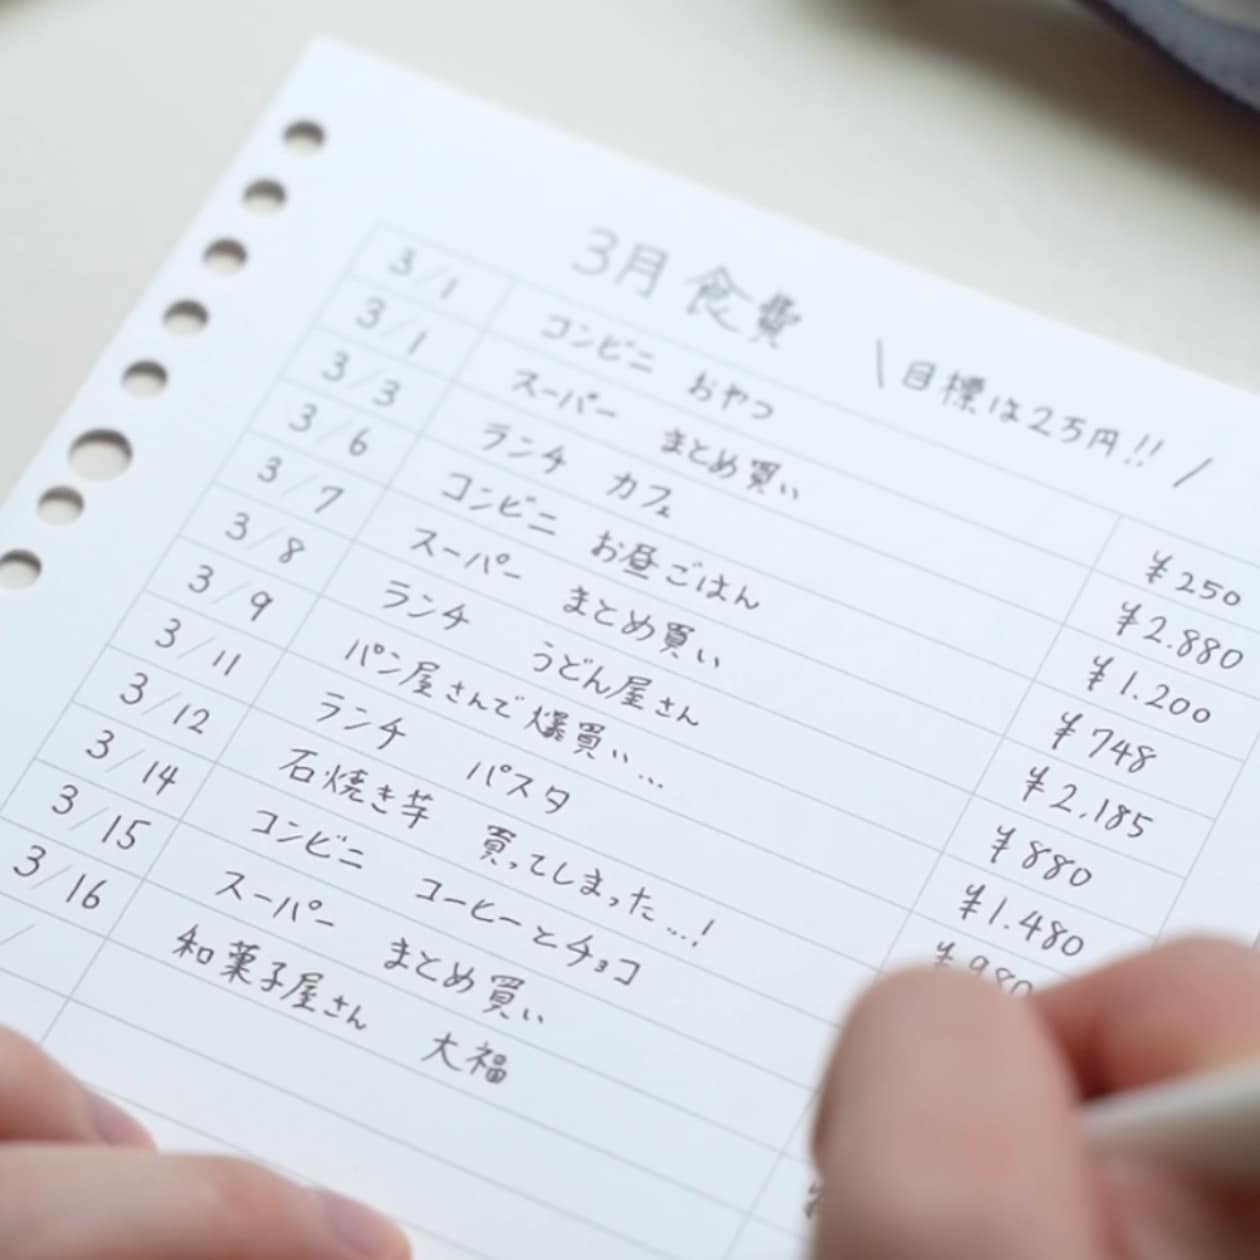 3月 食費
\ 目標は2万円!! /
3/1 コンビニ おやつ ¥250
3/1 スーパー まとめ買い ¥2.880
3/3 ランチ カフェ ¥1.200
3/6 コンビニ お昼ごはん ¥748
3/7 スーパー まとめ買い ¥2.185
3/8 ランチ うどん屋さん ¥880
3/9 パン屋さんで爆買い... ¥1.480
3/11 ランチ パスタ ¥980
3/12 石焼き芋 買ってしまった...!
3/14 コンビニ コーヒーとチョコ
3/15 スーパー まとめ買い
3/16 和菓子屋さん 大福 ¥
/